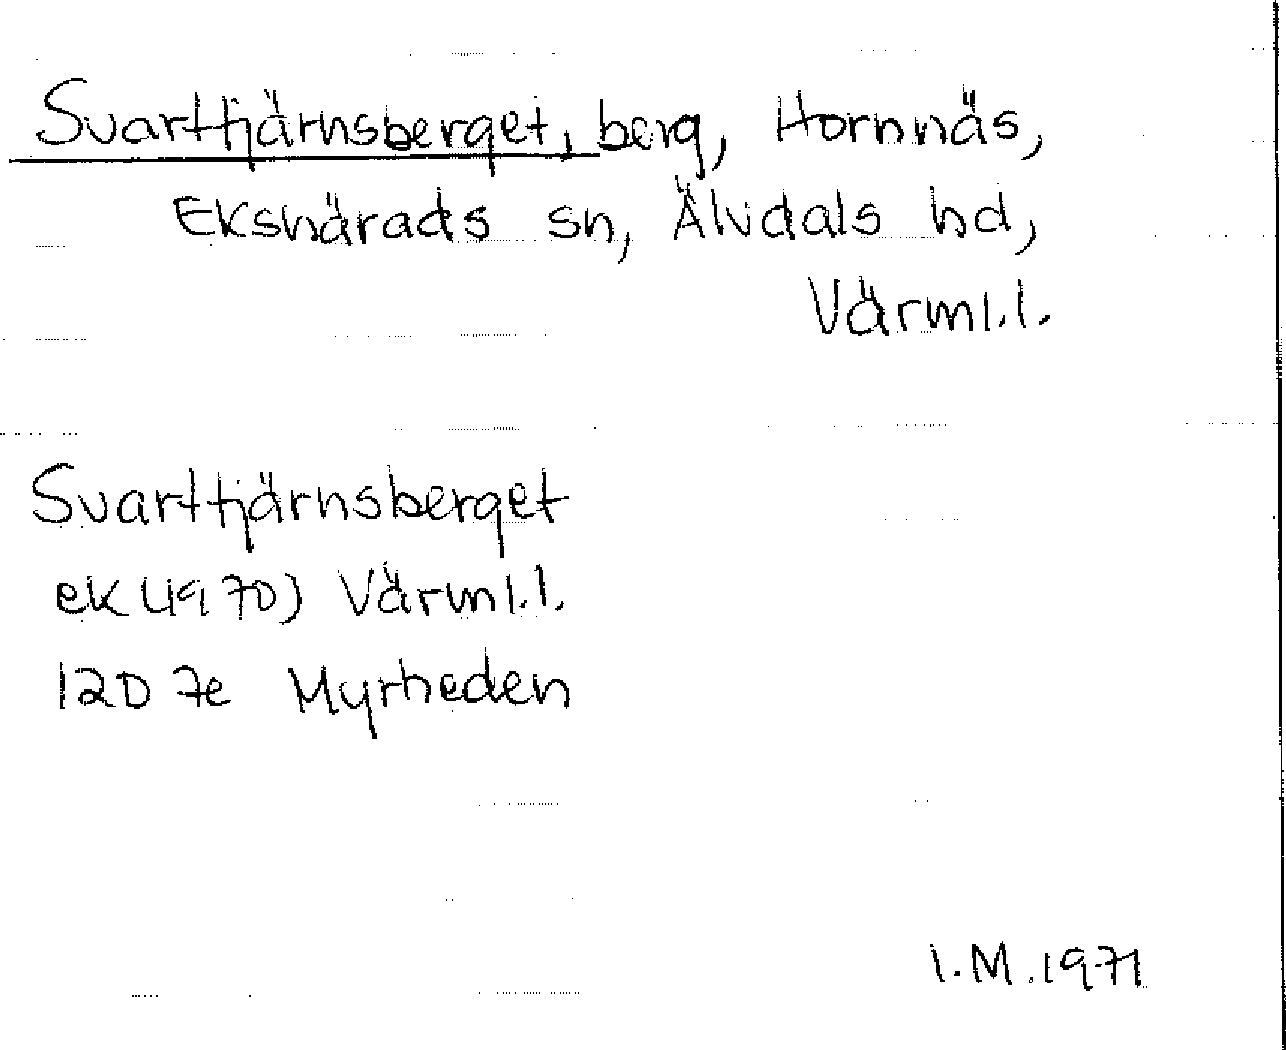 Svarttjärnsberget, berg, Hornnäs,
Ekshärads sn, Älvdals hd,
Värml.l.
Svarttjärnsberget
ek (1970) Värml.l.
12D 7e Myrheden
I.M.1971